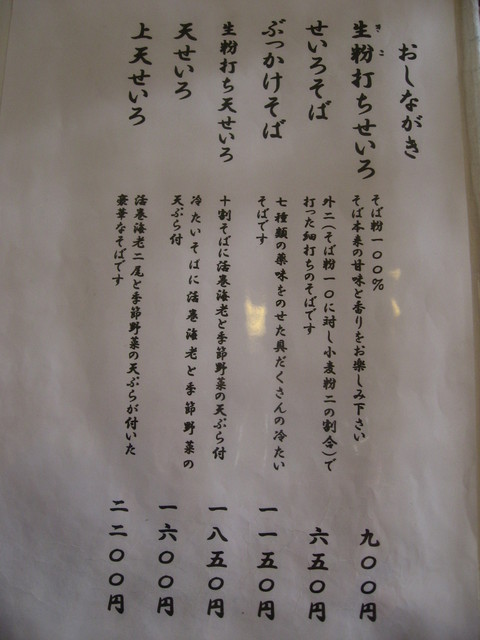 おしながき
生粉打ちせいろ
きこ
そば粉一〇〇%
そば本来の甘味と香りをお楽しみ下さい
九〇〇円
せいろそば
外二(そば粉一〇に対し小麦粉二の割合)で
打った細打ちのそばです
六五〇円
ぶっかけそば
七種類の薬味をのせた具だくさんの冷たい
そばです
一一五〇円
生粉打ち天せいろ
十割そばに活巻海老と季節野菜の天ぷら付
一八五〇円
天せいろ
冷たいそばに活巻海老と季節野菜の
天ぷら付
一六〇〇円
上天せいろ
活巻海老二尾と季節野菜の天ぷらが付いた
豪華なそばです
二二〇〇円